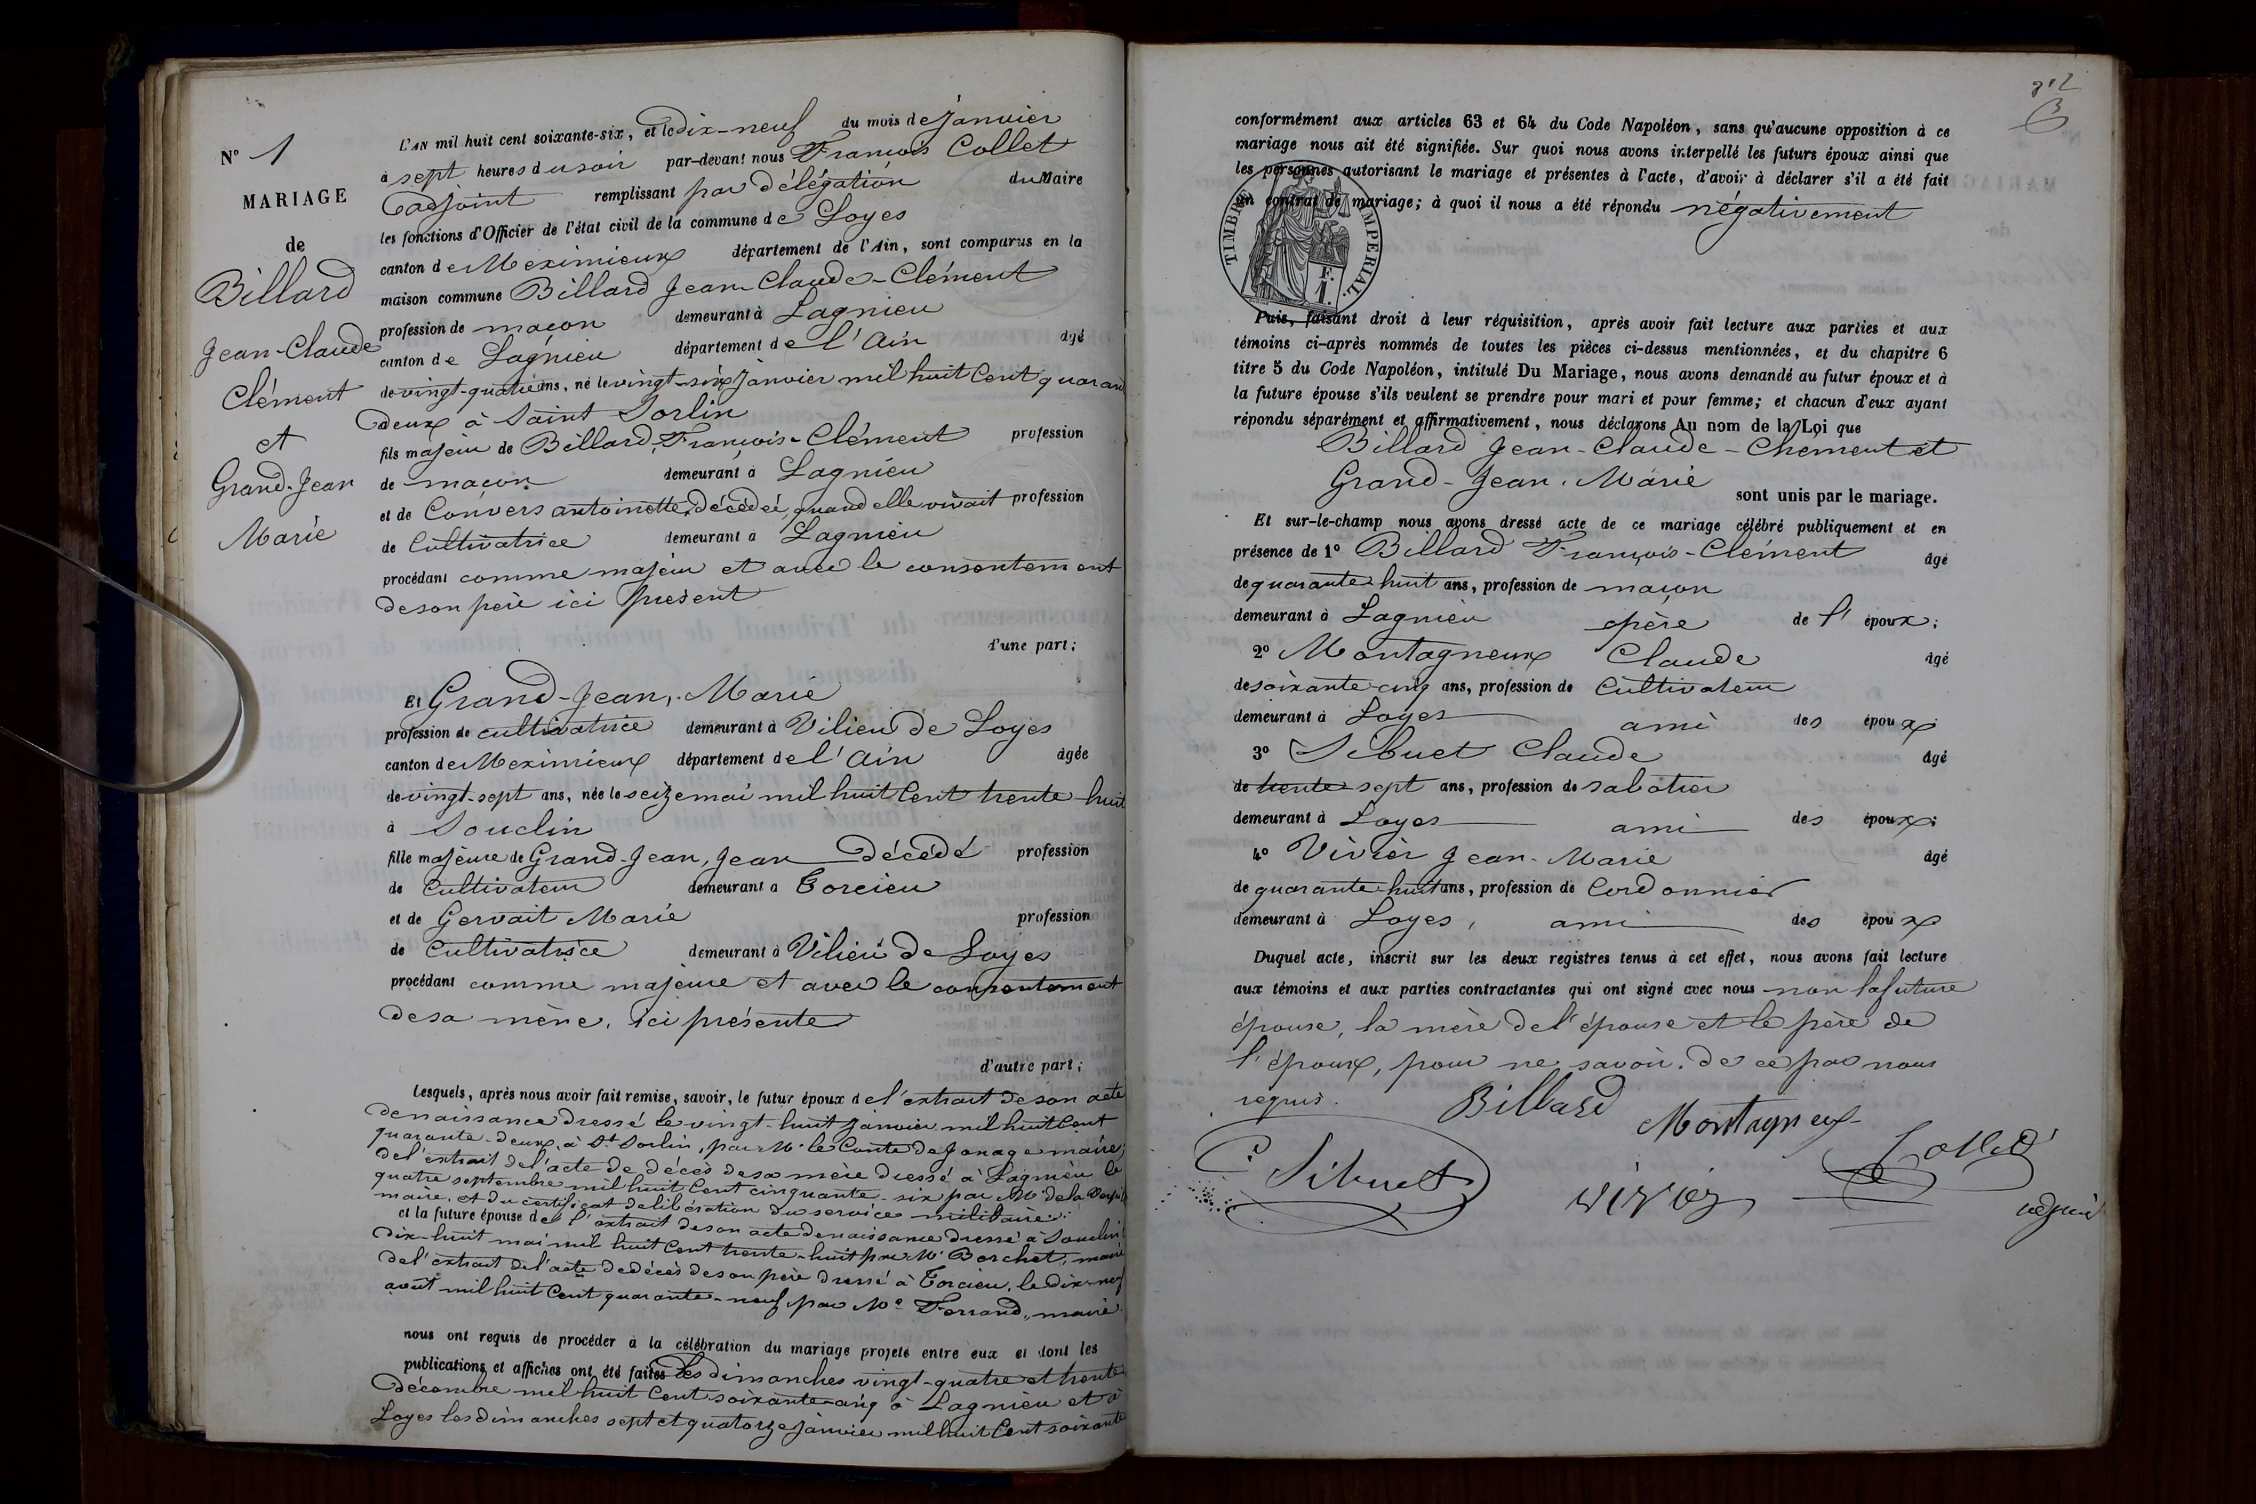 N° 1
MARIAGE
de
Billard
Jean-Claude
Clément
et
Grand-Jean
Marie
L'AN mil huit cent soixante-six, et le dix-neuf du mois de Janvier
à sept heures du soir par-devant nous François Collet
adjoint remplissant par délégation du Maire
les fonctions d'Officier de l'état civil de la commune de Loyes
canton de Meximieux département de l'Ain, sont comparus en la
maison commune Billard Jean-Claude-Clément
profession de maçon demeurant à Lagnieu
canton de Lagnieu département de l'Ain âgé
de vingt-quatre ans, né le vingt-six Janvier mil huit Cent quarante
deux à Saint Sorlin
fils majeur de Billard, François-Clément profession
de maçon demeurant à Lagnieu
et de Convers antoinette, décédée, quand elle vivait profession
de Cultivatrice demeurant à Lagnieu
procédant comme majeur et avec le consentement
de son père ici présent
d'une part;
Et Grand-Jean, Marie
profession de cultivatrice demeurant à Vilieu de Loyes
canton de Meximieux département de l'Ain âgée
de vingt-sept ans, née le seize mai mil huit Cent trente-huit
à Souclin
fille majeure de Grand-Jean, Jean décédé profession
de Cultivateur demeurant à Torcieu
et de Gervait Marie profession
de Cultivatrice demeurant à Vilieu de Loyes
procédant comme majeure et avec le consentement
de sa mère, ici présente
d'autre part;
Lesquels, après nous avoir fait remise, savoir, le futur époux de l'extrait de son acte
de naissance dressé le vingt-huit Janvier mil huit Cent
quarante-deux, à St Sorlin, par Mr le Comte de Jonage maire,
de l'extrait de l'acte de décès de sa mère dressé à Lagnieu le
quatre septembre mil huit Cent cinquante-six par Mr de la
maire, et du certificat de libération du service militaire;
et la future épouse de l'extrait de son acte de naissance dressé à Souclin
dix-huit mai mil huit Cent trente-huit par Mr Borchet, maire
de l'extrait de l'acte de décès de son père dressé à Torcieu, le dix-neuf
août mil huit Cent quarante-neuf par Mr Ferrand, maire.
nous ont requis de procéder à la célébration du mariage projeté entre eux et dont les
publications et affiches ont été faites Les dimanches vingt-quatre et trente
décembre mil huit Cent soixante-cinq à Lagnieu et à
Loyes les dimanches sept et quatorze Janvier mil huit Cent soixante
conformément aux articles 63 et 64 du Code Napoléon, sans qu'aucune opposition à ce
mariage nous ait été signifiée. Sur quoi nous avons interpellé les futurs époux ainsi que
les personnes autorisant le mariage et présentes à l'acte, d'avoir à déclarer s'il a été fait
un contrat de mariage; à quoi il nous a été répondu négativement
TIMBRE IMPERIAL.
Puis, faisant droit à leur réquisition, après avoir fait lecture aux parties et aux
témoins ci-après nommés de toutes les pièces ci-dessus mentionnées, et du chapitre 6
titre 5 du Code Napoléon, intitulé Du Mariage, nous avons demandé au futur époux et à
la future épouse s'ils veulent se prendre pour mari et pour femme; et chacun d'eux ayant
répondu séparément et affirmativement, nous déclarons Au nom de la Loi que
Billard Jean-Claude-Chément et
Grand-Jean. Marie sont unis par le mariage.
Et sur-le-champ nous avons dressé acte de ce mariage célébré publiquement et en
présence de 1° Billard François-Clément âgé
de quarante-huit ans, profession de maçon
demeurant à Lagnieu père de l' époux;
2° Montagneux Claude âgé
de soixante-cinq ans, profession de Cultivateur
demeurant à Loyes ami des époux;
3° Sibuet Claude âgé
de trente-sept ans, profession de sabotier
demeurant à Loyes ami des époux;
4° Vivier Jean-Marie âgé
de quarante-huit ans, profession de Cordonnier
demeurant à Loyes, ami des époux
Duquel acte, inscrit sur les deux registres tenus à cet effet, nous avons fait lecture
aux témoins et aux parties contractantes qui ont signé avec nous non la future
épouse, la mère de l'épouse et le père de
l'époux, pour ne savoir. de ce par nous
requis.
Billard
Montagneux
Collet
C. Sibuet
vivier
adjoint